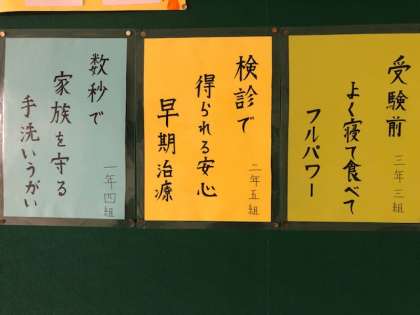 受験前
よく寝て食べて
フルパワー
三年三組
検診で
得られる安心
早期治療
二年五組
数秒で
家族を守る
手洗いうがい
一年四組